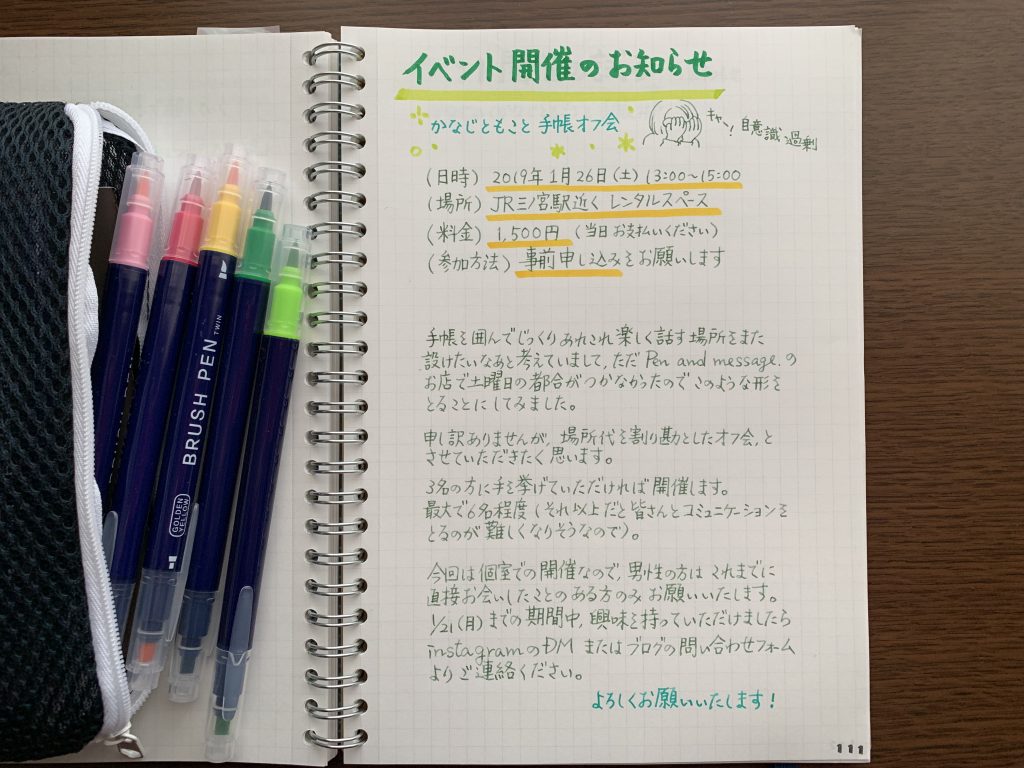 イベント開催のお知らせ
かなじともこと 手帳オフ会
キャー! 自意識過剰
(日時) 2019年1月26日(土) 13:00〜15:00
(場所) JR三ノ宮駅近く レンタルスペース
(料金) 1,500円 (当日お支払いください)
(参加方法) 事前申し込みをお願いします
手帳を囲んでじっくりあれこれ楽しく話す場所をまた
設けたいなあと考えていまして、ただ Pen and message. の
お店で土曜日の都合がつかなかったのでこのような形を
とることにしてみました。
申し訳ありませんが、場所代を割り勘としたオフ会、と
させていただきたく思います。
3名の方に手を挙げていただければ開催します。
最大で6名程度(それ以上だと皆さんとコミュニケーションを
とるのが難しくなりそうなので)。
今回は個室での開催なので、男性の方はこれまでに
直接お会いしたことのある方のみお願いいたします。
1/21(月)までの期間中、興味を持っていただけましたら
instagramのDMまたはブログの問い合わせフォーム
よりご連絡ください。
よろしくお願いいたします!
111
BRUSH PEN TWIN
GOLDEN YELLOW